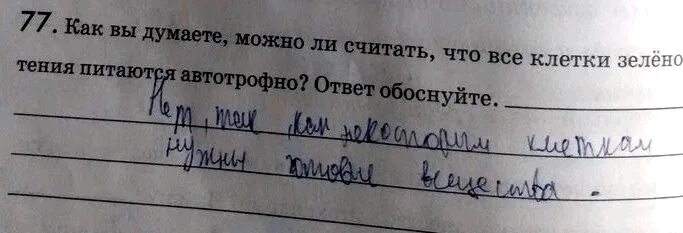 77. Как вы думаете, можно ли считать, что все клетки зелёно
тения питаются автотрофно? Ответ обоснуйте.
Нет, так как некоторым клеткам
нужны готовые вещества.